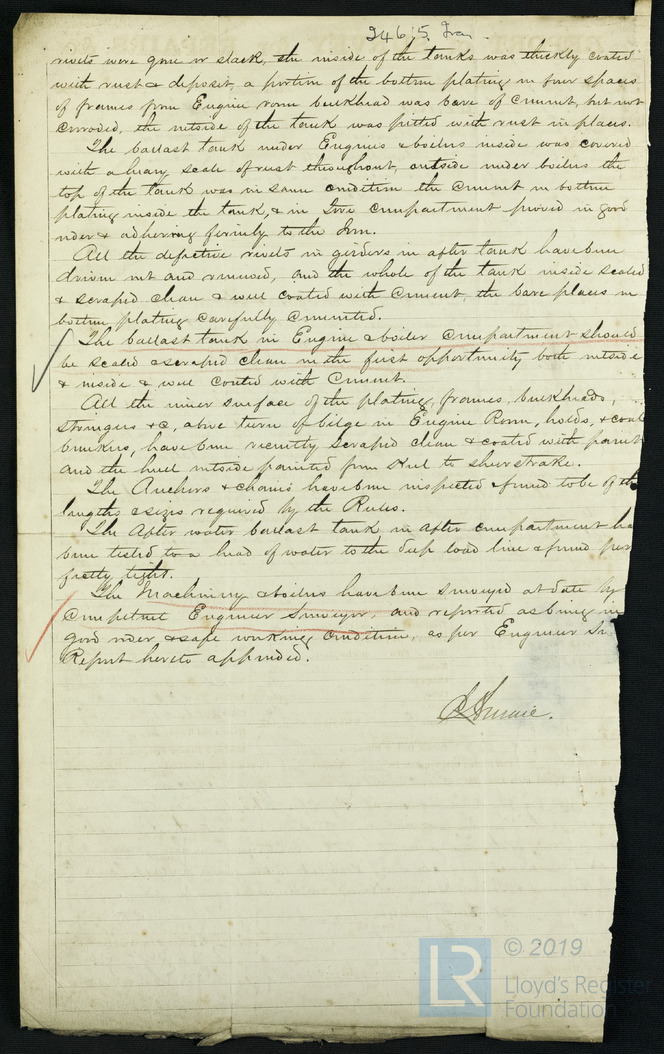 24615 Iron
rivets were gone or slack, the inside of the tanks was thickly coated
with rust & deposit, a portion of the bottom plating in four spaces
of frames from Engine room bulkhead was bare of cement, but not
corroded, the outside of the tank was pitted with rust in places.
The ballast tank under Engines & boilers inside was covered
with a heavy scale of rust throughout, outside under boilers the
top of the tank was in same condition the cement on bottom
plating inside the tank, & in Fore compartment proved in good
order & adhering firmly to the Iron.
All the defective rivets in girders in after tank have been
driven out and renewed, and the whole of the tank inside scaled
& scraped clean & well coated with cement, the bare places in
bottom plating carefully cemented.
The ballast tank in Engine & boiler compartment should
be scaled & scraped clean on the first opportunity both outside
& inside & well coated with cement.
All the inner surface of the plating, frames, bulkheads,
stringers &c, above turn of bilge in Engine Room, holds, & coal
bunkers, have been recently scraped clean & coated with paint
and the hull outside painted from Keel to sheerstrake.
The Anchors & chains have been inspected & found to be of the
lengths & sizes required by the Rules.
The After water ballast tank in after compartment ha
been tested to a head of water to the deep load line & found per
fectly tight.
The Machinery & boilers have been surveyed at date by
competent Engineer Surveyor, and reported as being in
good order & safe working condition, as per Engineer Sr
Report hereto appended.
LR
© 2019
Lloyd's Register
Foundation